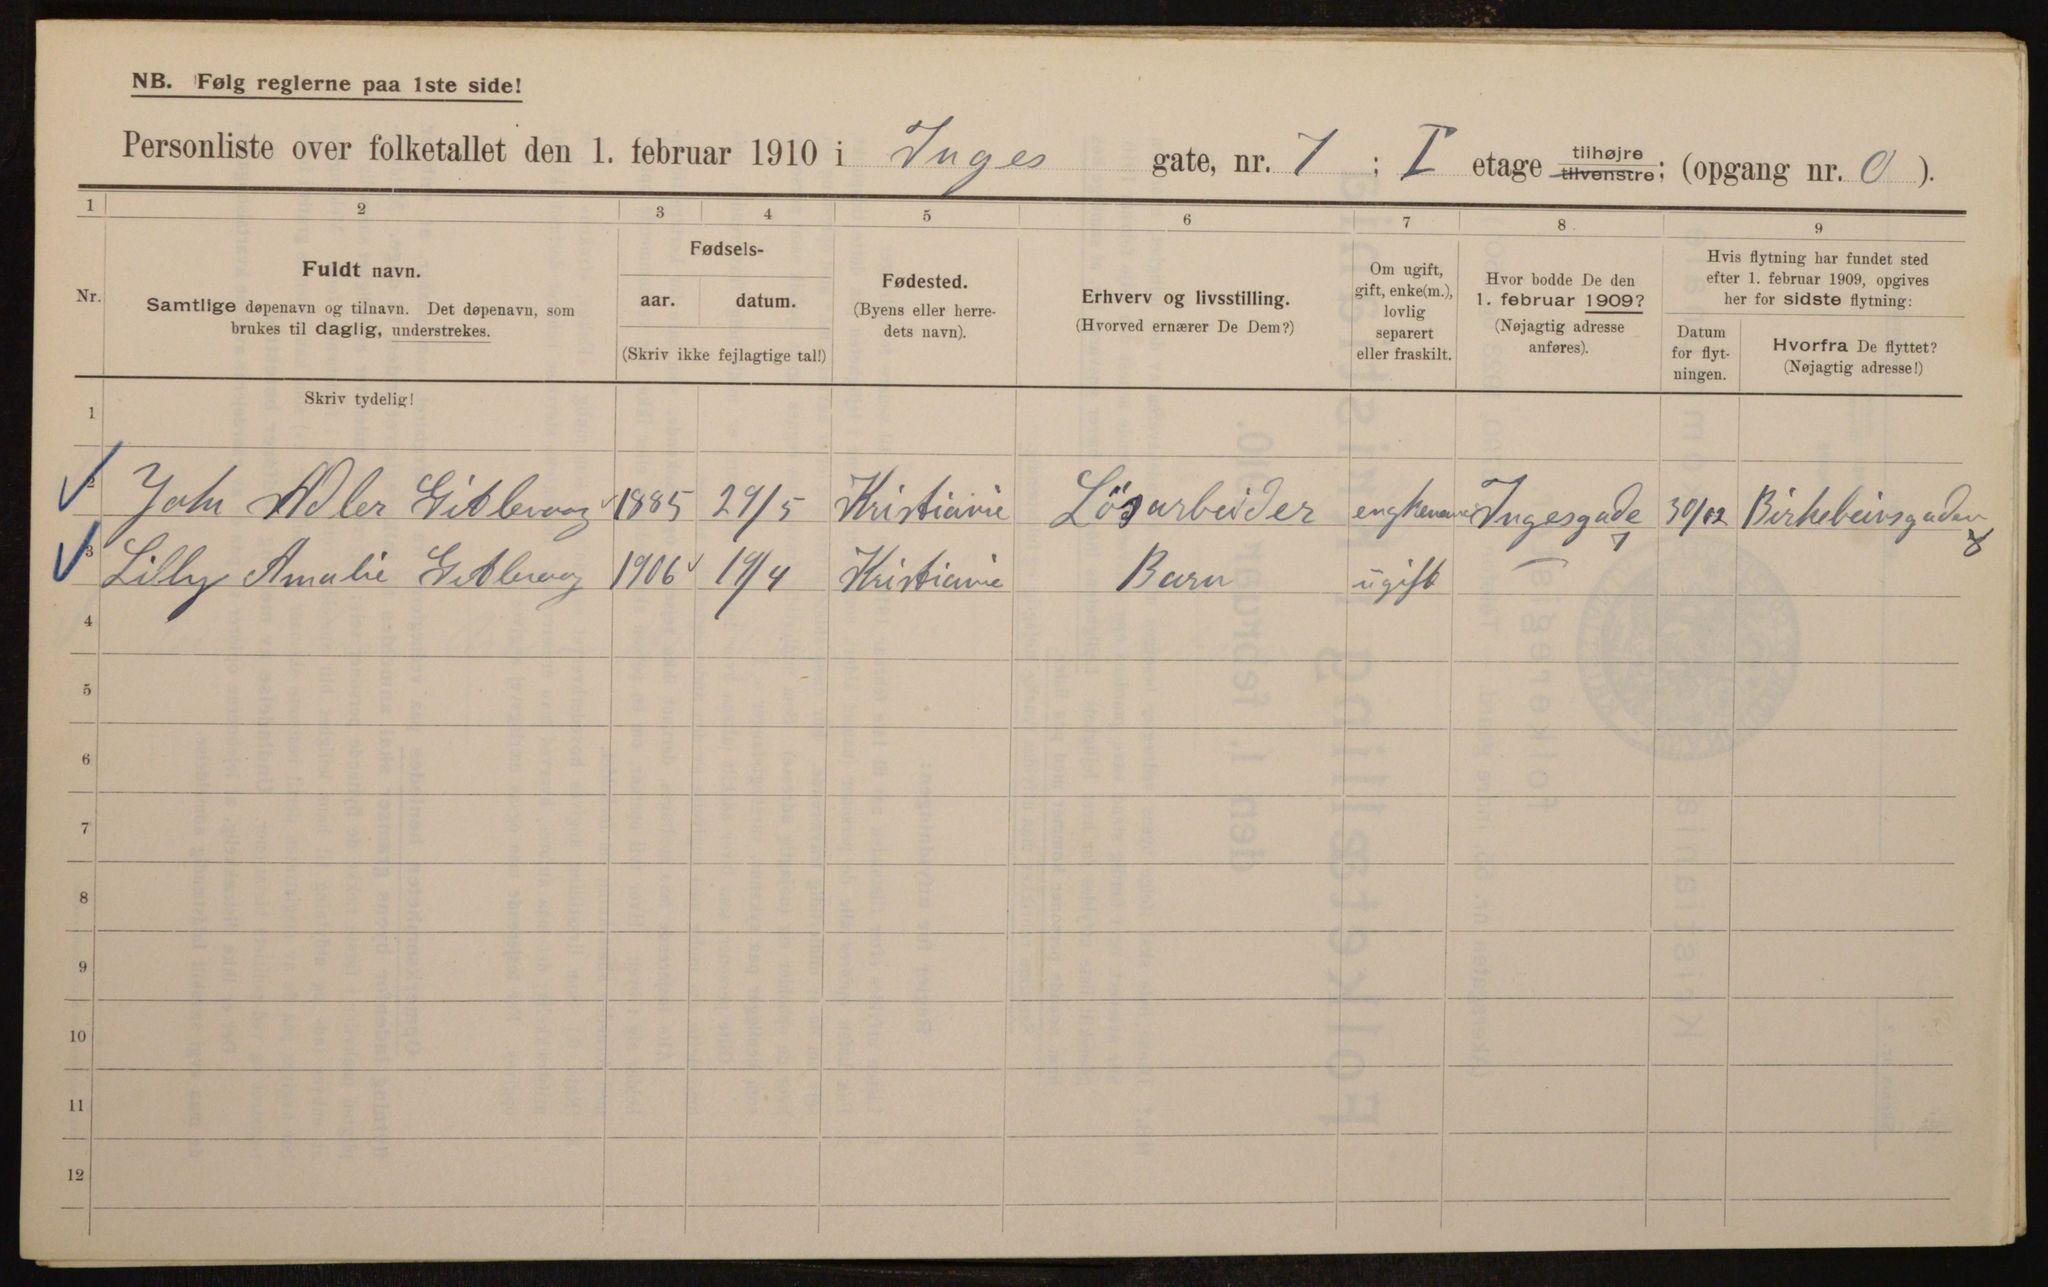 NB. Følg reglerne paa 1ste side!
Personliste over folketallet den 1. februar 1910 i Inges gate, nr. 7 ; I etage tilhøjre tilvenstre; (opgang nr. 0 ).
1 2 3 4 5 6 7 8 9
Nr.
Fuldt navn.
Samtlige døpenavn og tilnavn. Det døpenavn, som
brukes til daglig, understrekes.
Fødsels-
aar. datum.
(Skriv ikke fejlagtige tal!)
Fødested.
(Byens eller herre-
dets navn).
Erhverv og livsstilling.
(Hvorved ernærer De Dem?)
Om ugift,
gift, enke(m.),
lovlig
separert
eller fraskilt.
Hvor bodde De den
1. februar 1909?
(Nøjagtig adresse
anføres).
Hvis flytning har fundet sted
efter 1. februar 1909, opgives
her for sidste flytning:
Datum
for flyt-
ningen.
Hvorfra De flyttet?
(Nøjagtig adresse!)
Skriv tydelig!
1
2 John Adler 1885 29/5 Kristianie Lösarbeider Ingesgade 7 30/12 Birkebeinsgaden 8
3 Lilly Amalie 1906 19/4 Kristianie Barn ugift —
4
5
6
7
8
9
10
11
12